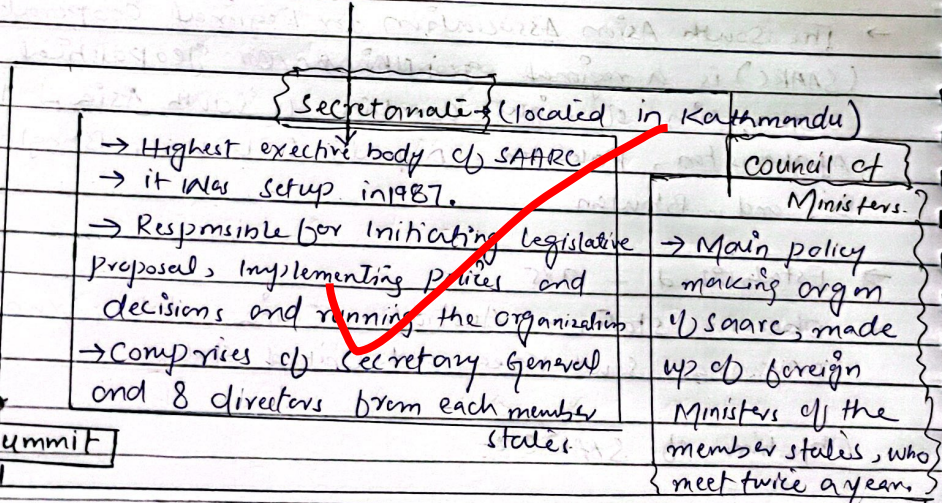 {Secretariate} → (located in Kathmandu)
→ Highest exective body of SAARC
→ it was setup in 1987.
→ Responsible for initiating legislative
proposal, implementing polices and
decisions and running the organization
→ Comprises of Secretary General
and 8 directors from each member
states.
Council of
Ministers.
→ Main policy
making organ
of saarc, made
up of foreign
Ministers of the
member states, who
meet twice a year.
ummit